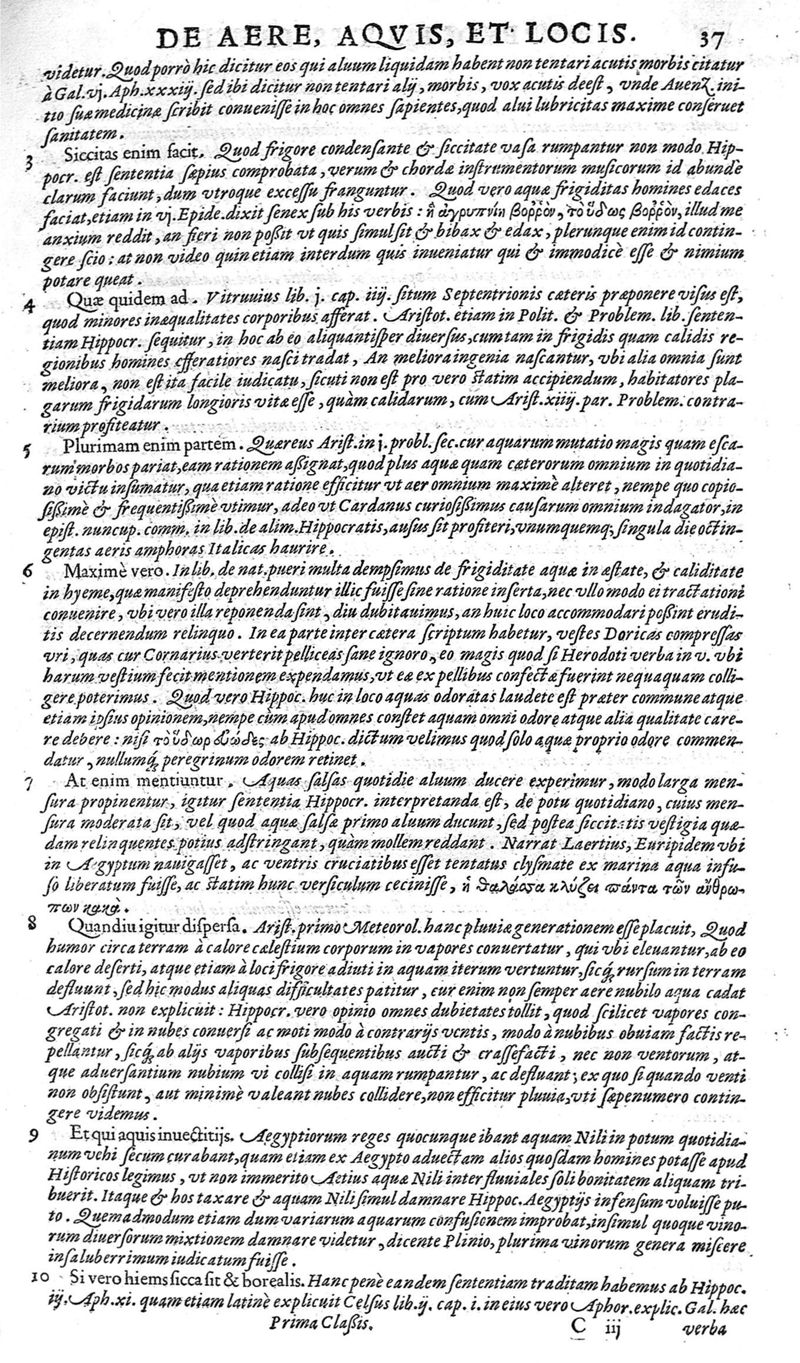 DE AERE, AQVIS, ET LOCIS. 37
videtur. Quod porrò hic dicitur eos qui aluum liquidam habent non tentari acutis morbis citatur
à Gal. vj. Aph. xxxiij. sed ibi dicitur non tentari alij, morbis, vox acutis deest, vnde Auenz. ini-
tio suæ medicinæ scribit conuenisse in hoc omnes sapientes, quod alui lubricitas maxime conseruet
sanitatem.
3 Siccitas enim facit. Quod frigore condensante & siccitate vasa rumpantur non modo Hip-
pocr. est sententia sæpius comprobata, verum & chordæ instrumentorum musicorum id abunde
clarum faciunt, dum vtroque excessu franguntur. Quod vero aquæ frigiditas homines edaces
faciat, etiam in vj. Epide. dixit senex sub his verbis: ἢ ἀγρυπνίη βορρὸν, τὸ ὕδως βορρὸν, illud me
anxium reddit, an fieri non poßit vt quis simul sit & bibax & edax, plerunque enim id contin-
gere scio: at non video quin etiam interdum quis inueniatur qui & immodicè esse & nimium
potare queat.
4 Quæ quidem ad. Vitruuius lib. j. cap. iiij. situm Septentrionis cæteris præponere visus est,
quod minores inæqualitates corporibus afferat. Aristot. etiam in Polit. & Problem. lib. senten-
tiam Hippocr. sequitur, in hoc ab eo aliquantisper diuersus, cum tam in frigidis quam calidis re-
gionibus homines efferatiores nasci tradat, An meliora ingenia nascantur, vbi alia omnia sunt
meliora, non est ita facile iudicatu, sicuti non est pro vero statim accipiendum, habitatores pla-
garum frigidarum longioris vitæ esse, quàm calidarum, cum Arist. xiiij. par. Problem. contra-
rium profiteatur.
5 Plurimam enim partem. Quæreus Arist. in j. probl. sec. cur aquarum mutatio magis quam esca-
rum morbos pariat, eam rationem aßignat, quod plus aquæ quam cæterorum omnium in quotidia-
no victu insumatur, qua etiam ratione efficitur vt aer omnium maximè alteret, nempe quo copio-
sißimè & frequentißimè vtimur, adeo vt Cardanus curiosißimus causarum omnium indagator, in
epist. nuncup. comm. in lib. de alim. Hippocratis, ausus sit profiteri, vnumquemq; singula die octin-
gentas aeris amphoras Italicas haurire.
6 Maximè vero. In lib. de nat. pueri multa dempsimus de frigiditate aquæ in æstate, & caliditate
in hyeme, quæ manifesto deprehenduntur illic fuisse sine ratione inserta, nec vllo modo ei tractationi
conuenire, vbi vero illa reponenda sint, diu dubitauimus, an huic loco accommodari poßint erudi-
tis decernendum relinquo. In ea parte inter cætera scriptum habetur, vestes Doricas compressas
vri, quas cur Cornarius verterit pelliceas sane ignoro, eo magis quod si Herodoti verba in v. vbi
harum vestium fecit mentionem expendamus, vt eæ ex pellibus confectæ fuerint nequaquam colli-
gere poterimus. Quod vero Hippoc. huc in loco aquas odoratas laudet est præter commune atque
etiam ipsius opinionem, nempe cùm apud omnes constet aquam omni odore atque alia qualitate care-
re debere: nisi τὸ ὕδωρ ἐυῶδες ab Hippoc. dictum velimus quod solo aquæ proprio odore commen-
datur, nullumq́; peregrinum odorem retinet.
7 At enim mentiuntur. Aquas salsas quotidie aluum ducere experimur, modo larga men-
sura propinentur, igitur sententia Hippocr. interpretanda est, de potu quotidiano, cuius men-
sura moderata sit, vel quod aquæ salsæ primo aluum ducunt, sed postea siccitatis vestigia quæ-
dam relinquentes potius adstringant, quàm mollem reddant. Narrat Laertius, Euripidem vbi
in Ægyptum nauigasset, ac ventris cruciatibus esset tentatus clysmate ex marina aqua infu-
so liberatum fuisse, ac statim hunc versiculum cecinisse, ἡ θαλάσσα κλύζει πάντα τῶν ἄνθρω-
πων κακὰ.
8 Quandiu igitur dispersa. Arist. primo Meteorol. hanc pluuiæ generationem esse placuit, Quod
humor circa terram à calore cælestium corporum in vapores conuertatur, qui vbi eleuantur, ab eo
calore deserti, atque etiam à loci frigore adiuti in aquam iterum vertuntur, sicq́; rursum in terram
defluunt, sed hic modus aliquas difficultates patitur, cur enim non semper aere nubilo aqua cadat
Aristot. non explicuit: Hippocr. vero opinio omnes dubietates tollit, quod scilicet vapores con-
gregati & in nubes conuersi ac moti modo à contrarijs ventis, modo à nubibus obuiam factis re-
pellantur, sicq́; ab alijs vaporibus subsequentibus aucti & crassefacti, nec non ventorum, at-
que aduersantium nubium vi collisi in aquam rumpantur, ac defluant; ex quo si quando venti
non obsistunt, aut minimè valeant nubes collidere, non efficitur pluuia, vti sæpenumero contin-
gere videmus.
9 Et qui aquis inuectitijs. Aegyptiorum reges quocunque ibant aquam Nili in potum quotidia-
num vehi secum curabant, quam etiam ex Aegypto aduectam alios quosdam homines potasse apud
Historicos legimus, vt non immerito Aetius aquæ Nili inter fluuiales soli bonitatem aliquam tri-
buerit. Itaque & hos taxare & aquam Nili simul damnare Hippoc. Aegyptijs infensum voluisse pu-
to. Quemadmodum etiam dum variarum aquarum confusionem improbat, insimul quoque vino-
rum diuersorum mixtionem damnare videtur, dicente Plinio, plurima vinorum genera miscere
insaluberrimum iudicatum fuisse.
10 Si vero hiems sicca sit & borealis. Hanc penè eandem sententiam traditam habemus ab Hippoc.
iij. Aph. xi. quam etiam latinè explicuit Celsus lib. ij. cap. i. in eius vero Aphor. explic. Gal. hæc
Prima Claßis. C iij verba